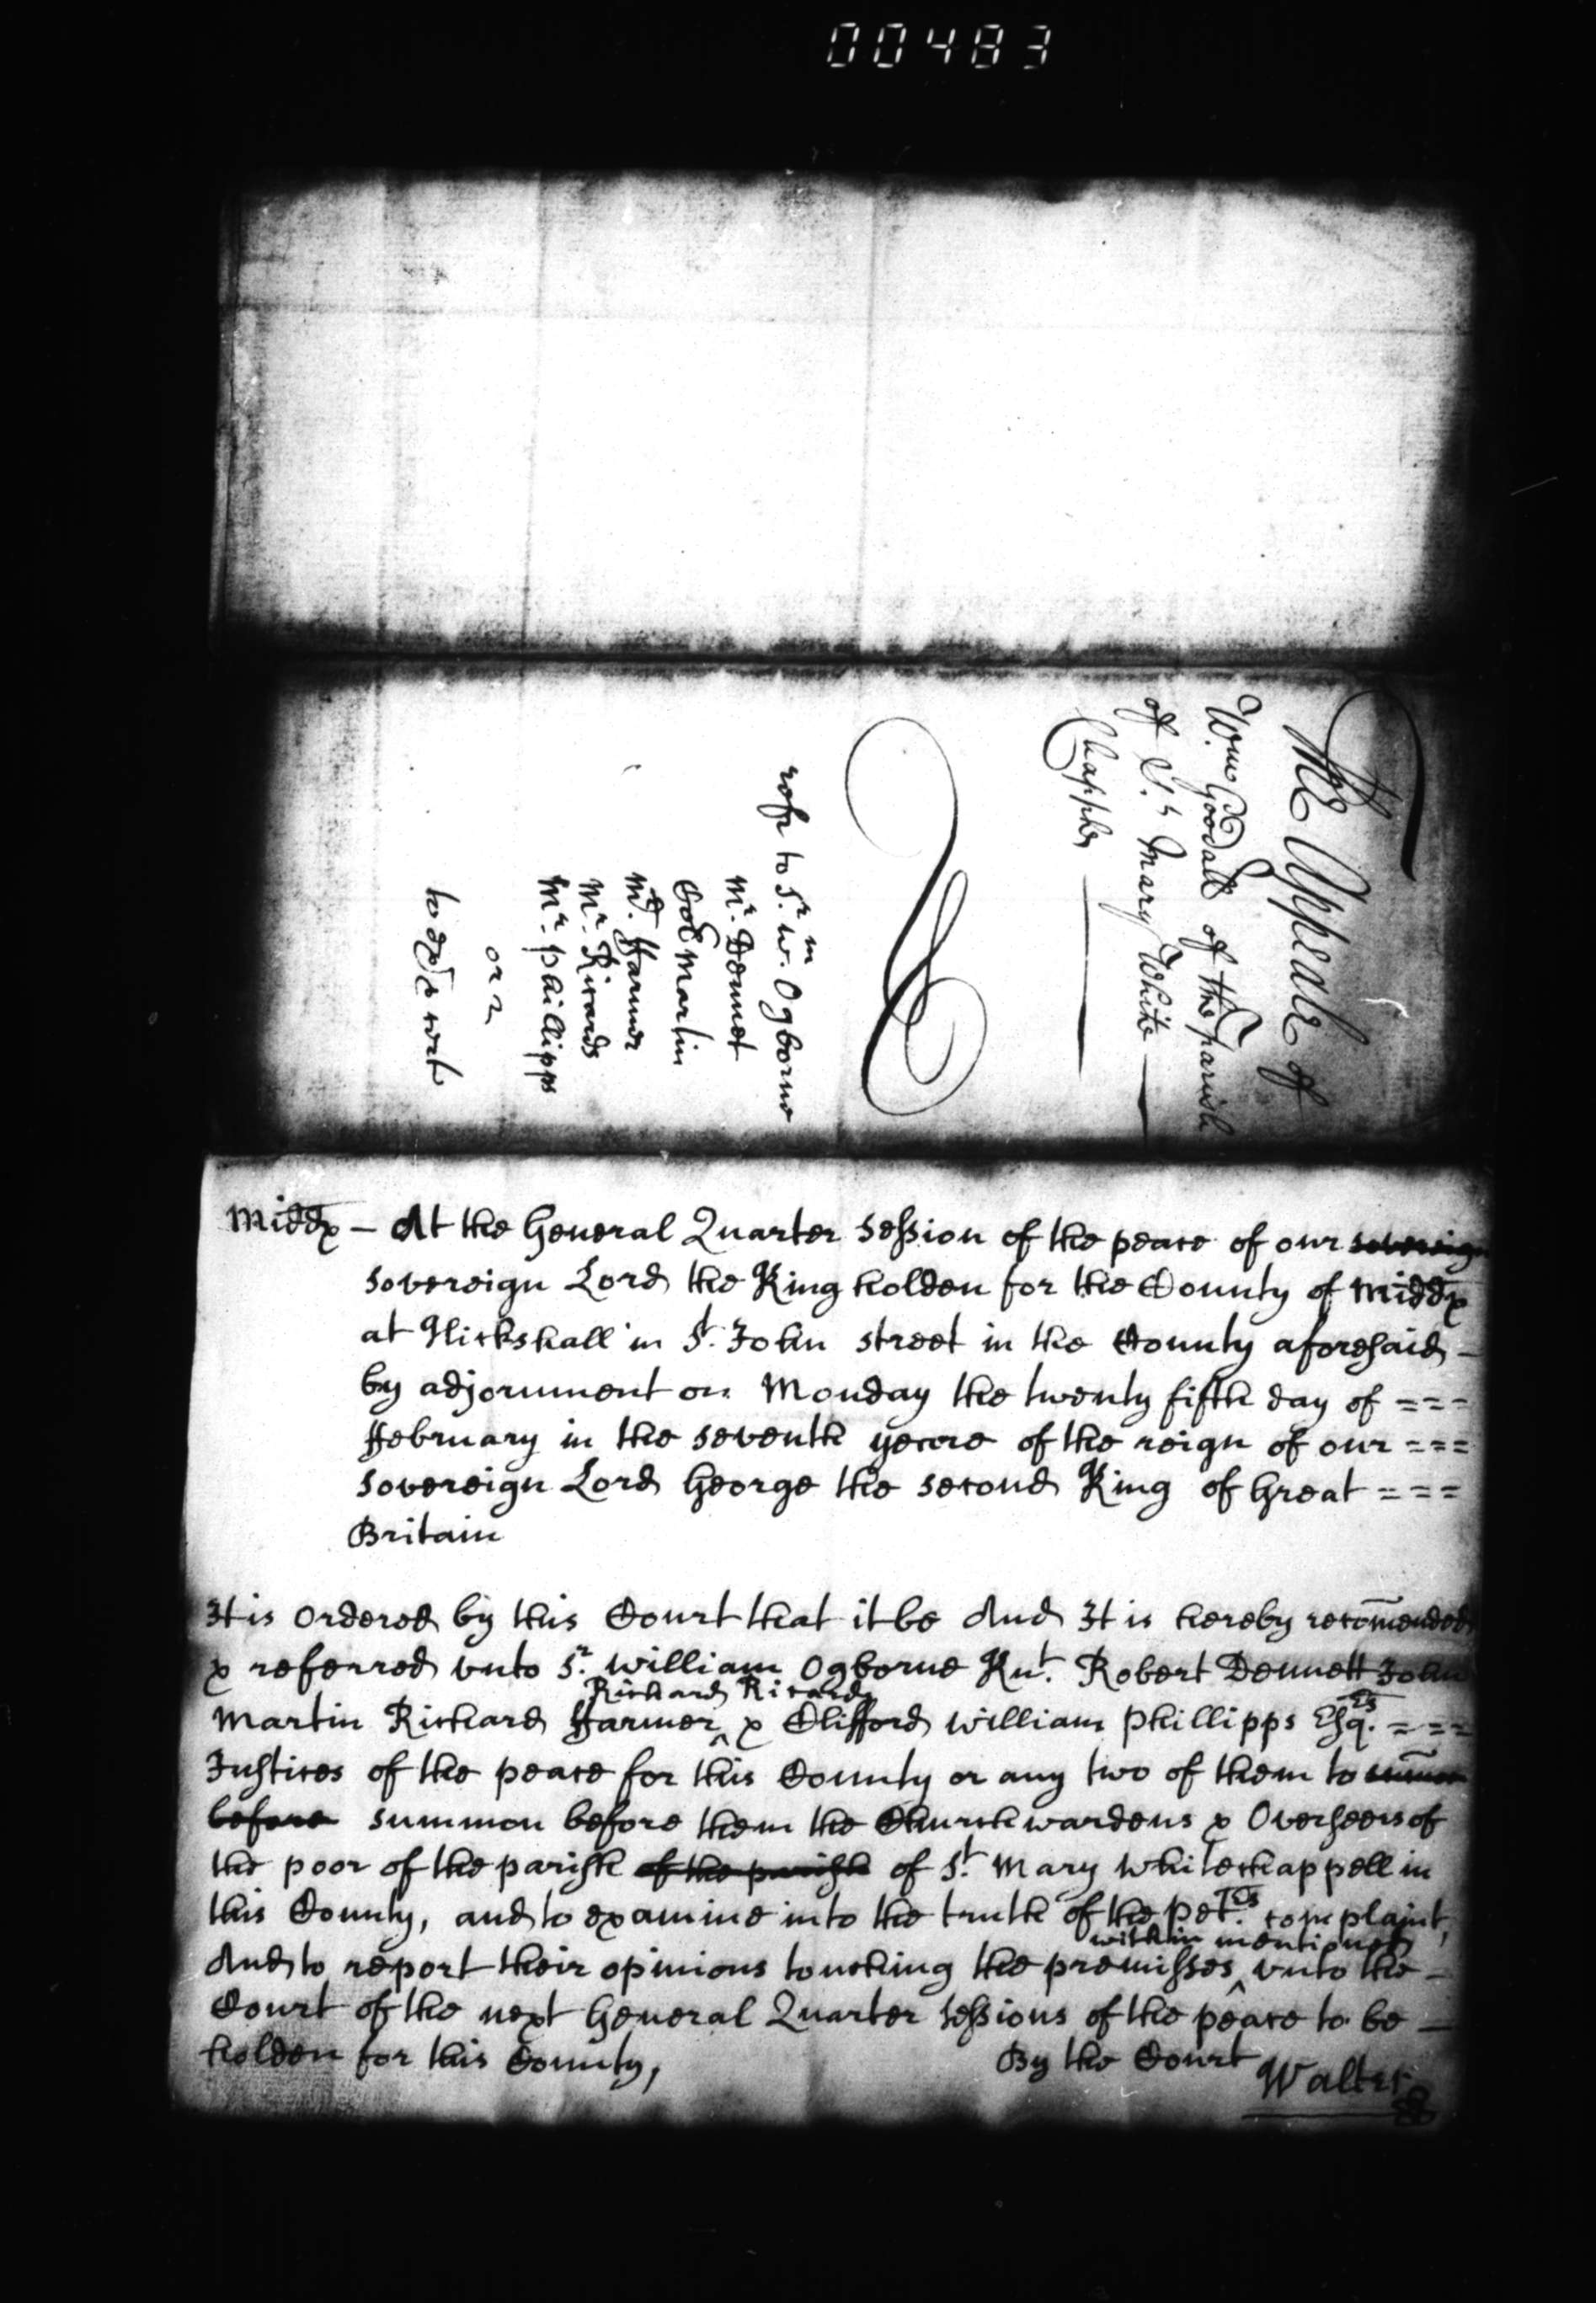 00483
The Appeale of
Wm. Goodall of the parish
of St. Mary White
Chappel
refr to Sr. Wm. Ogborne
Mr. Dennet
Coll Martin
Mr. Farmer
Mr. Ricards
Mr. Phillipps
or 2
to
Middx – At the General Quarter Session of the peace of our sovereign
Sovereign Lord the King holden for the County of Middx
at Hickshall in St. John street in the County aforesaid –
by adjornment on Monday the twenty fifth day of ===
ffebruary in the seventh yeare of the reign of our ===
Sovereign Lord George the second King of Great ===
Britain
It is Ordered by this Court that it be And It is hereby recom̄ended
& referred unto Sr. William Ogborne Knt. Robert Dennett John
Richard Ricards
Martin Richard ffarmer ^ & Clifford William Phillipps Esqrs. ===
Justices of the peace for this County or any two of them to sum̄on
before summon before them the Churchwardens & Overseers of
the poor of the parish of the parish of St. Mary Whitechappell in
this County, and to examine into the truth of the Petrs. complaint,
within mentioned
And to report their opinions touching the premisses ^ unto the –
Court of the next General Quarter Sessions of the peace to be –
holden for this County,
By the Court
Walter